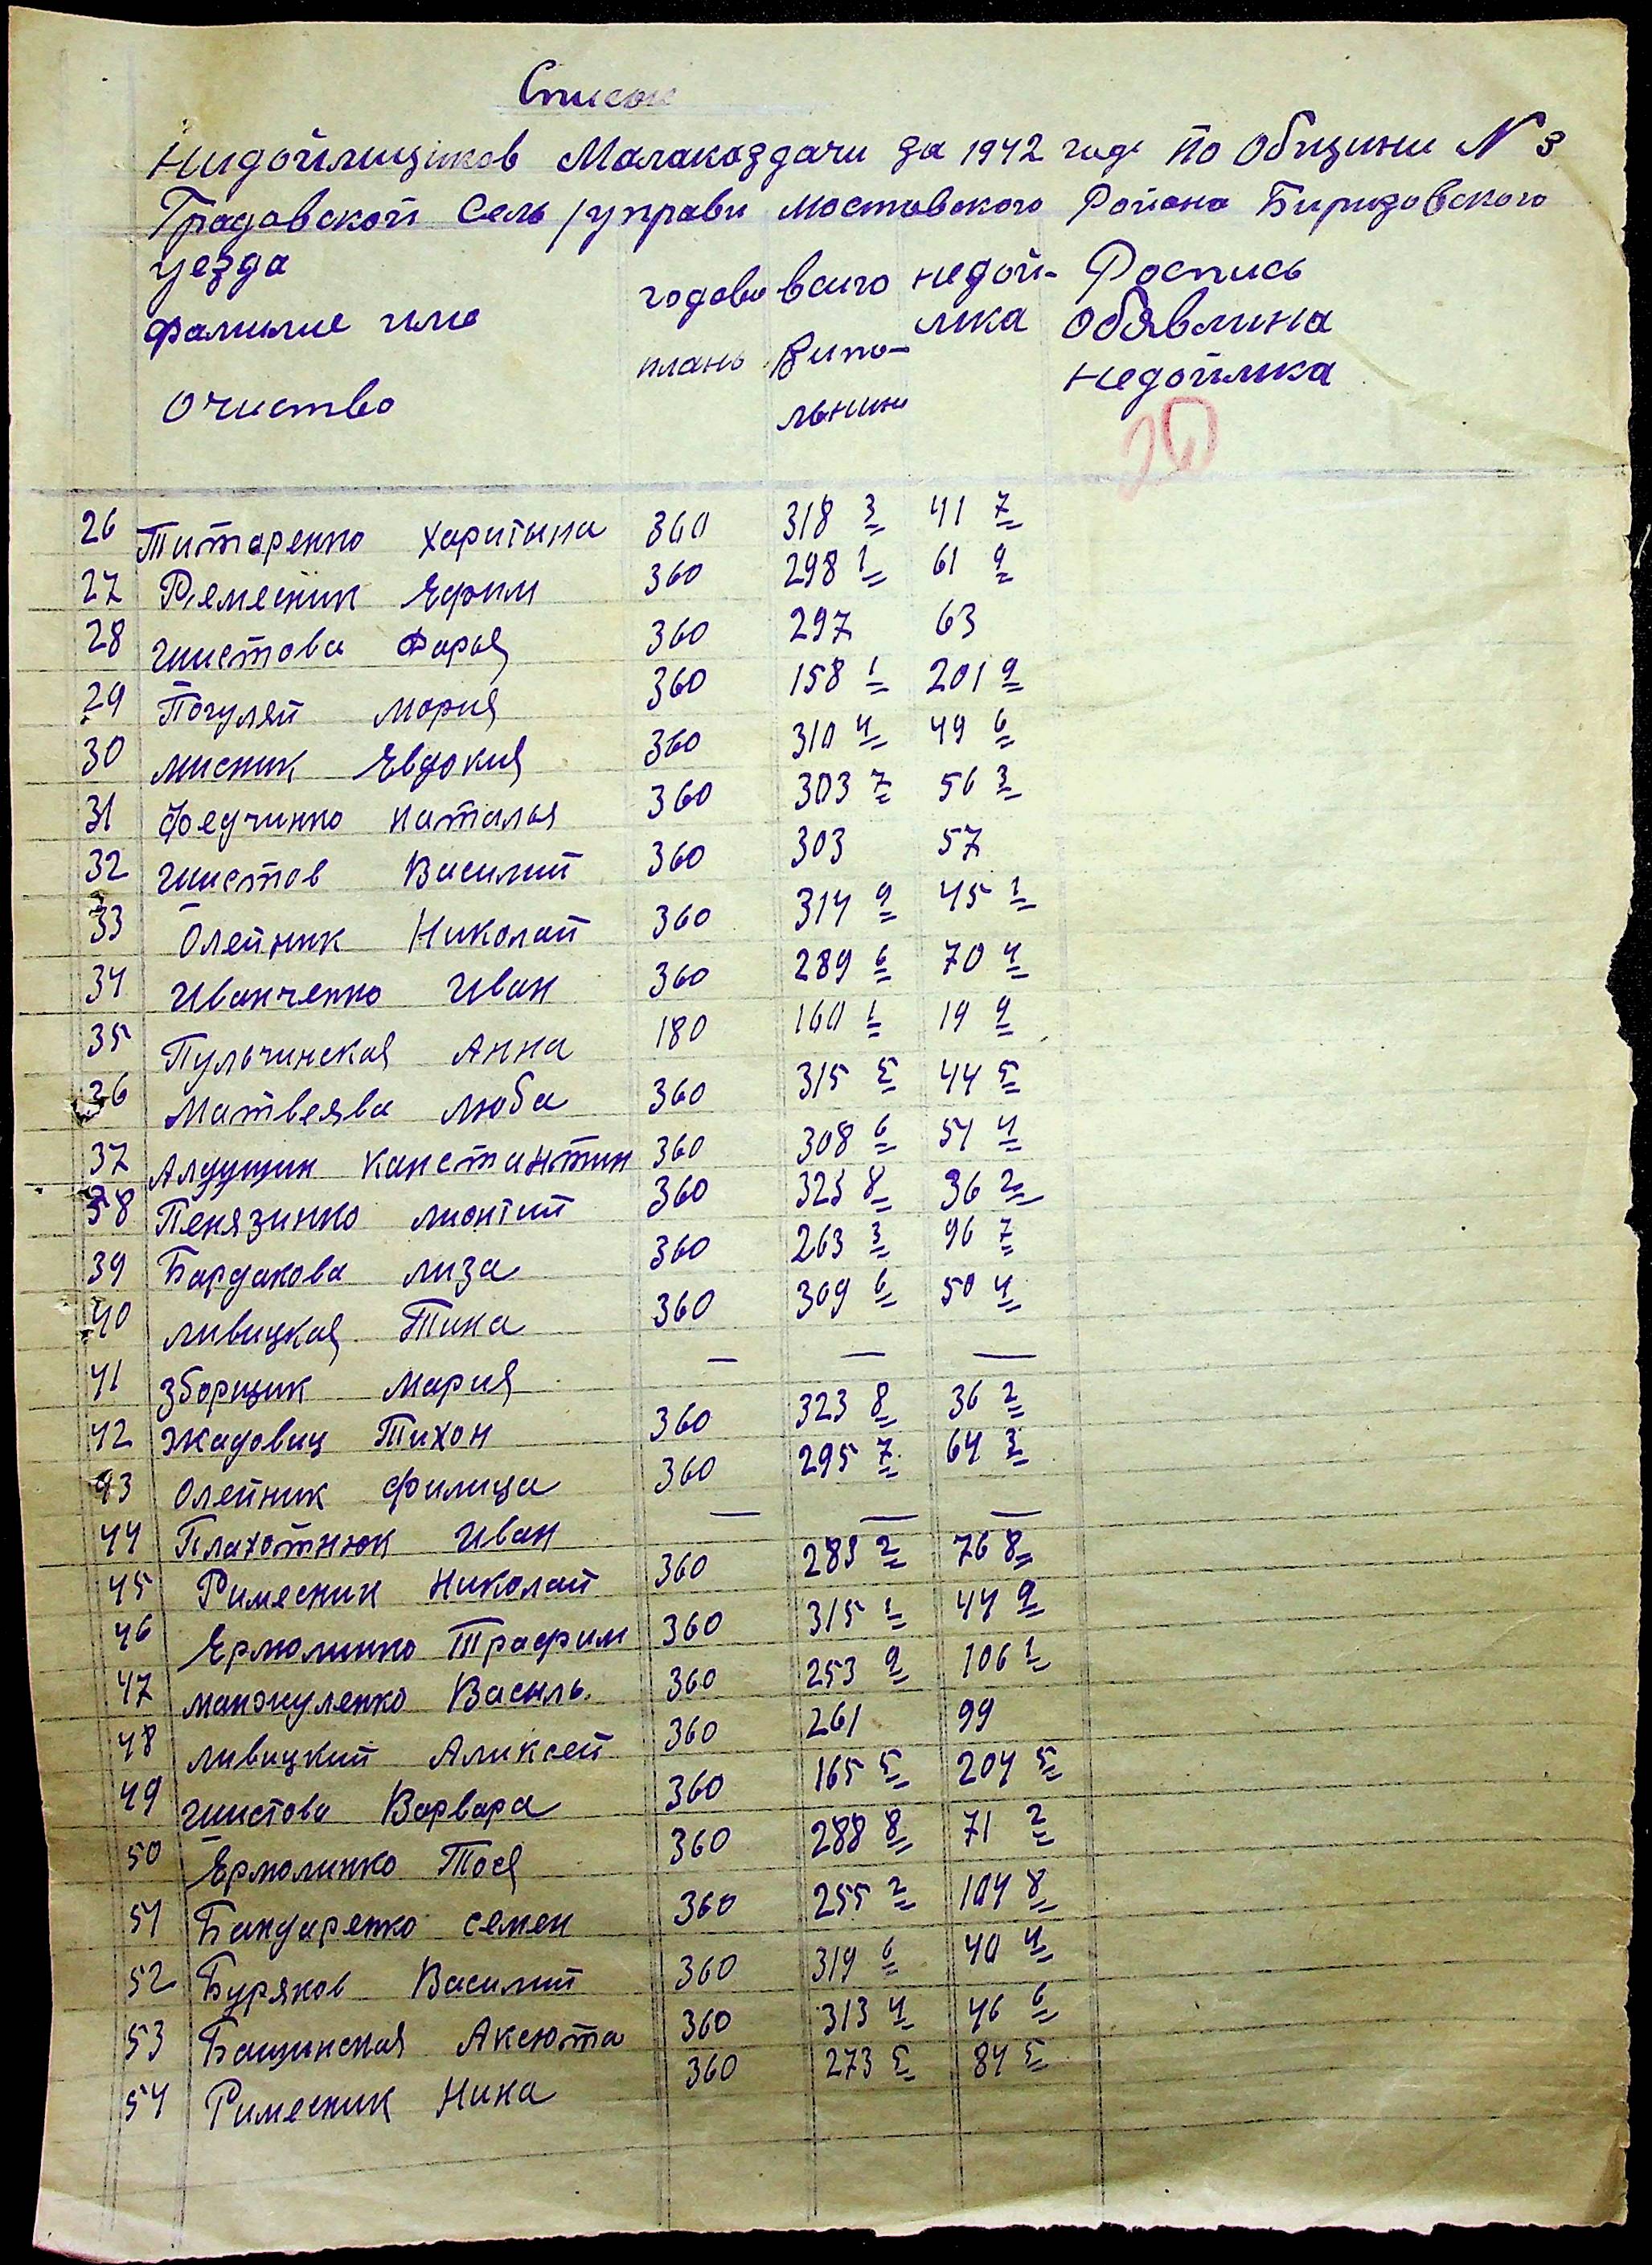 Список
Нидойлищиков Малаказдачи за 1942 годе по Общини N 3
Градовской Сель/управи Мостовского Района Биризовского
уезда
фамилие имя годови всиго недой- Роспись
лика обявлина
плань Випо- недойлика
Очиство льнини
26 Титаренко Харитина 360 318 3 41 7
27 Ремесник Ефим 360 298 1 61 9
28 Шистова Дарья 360 297 63
29 Погуляй Мория 360 158 1 201 9
30 Мисник Евдокия 360 310 4 49 6
31 Федчинко Наталья 360 303 7 56 3
32 Шистов Василий 360 303 57
33 Олейник Николай 360 314 9 45 1
34 Иванченко Иван 360 289 6 70 4
35 Пульчинская Анна 180 160 1 19 9
36 Матвеява Люба 360 315 5 44 5
37 Алдущин Канстантин 360 308 6 51 4
38 Пенязинко Лионтий 360 323 8 36 2
39 Бардакова Лиза 360 263 3 96 7
40 Ливицкая Тина 360 309 6 50 4
41 Зборщик Мария — — —
42 Жадовиц Тихон 360 323 8 36 2
43 Олейник Филица 360 295 7 64 3
44 Плахотнюк Иван — — —
45 Римесник Николай 360 283 2 76 8
46 Ермолинко Трафим 360 315 1 44 9
47 Манжуленко Василь. 360 253 9 106 1
48 Ливицкий Аликсей 360 261 99
49 Шистова Варвара 360 165 5 204 5
50 Ермолинко Тося 360 288 8 71 2
51 Бандаренко Семен 360 255 2 104 8
52 Буряков Василий 360 319 6 40 4
53 Бащинская Аксюта 360 313 4 46 6
54 Римесник Нина 360 273 5 84 5